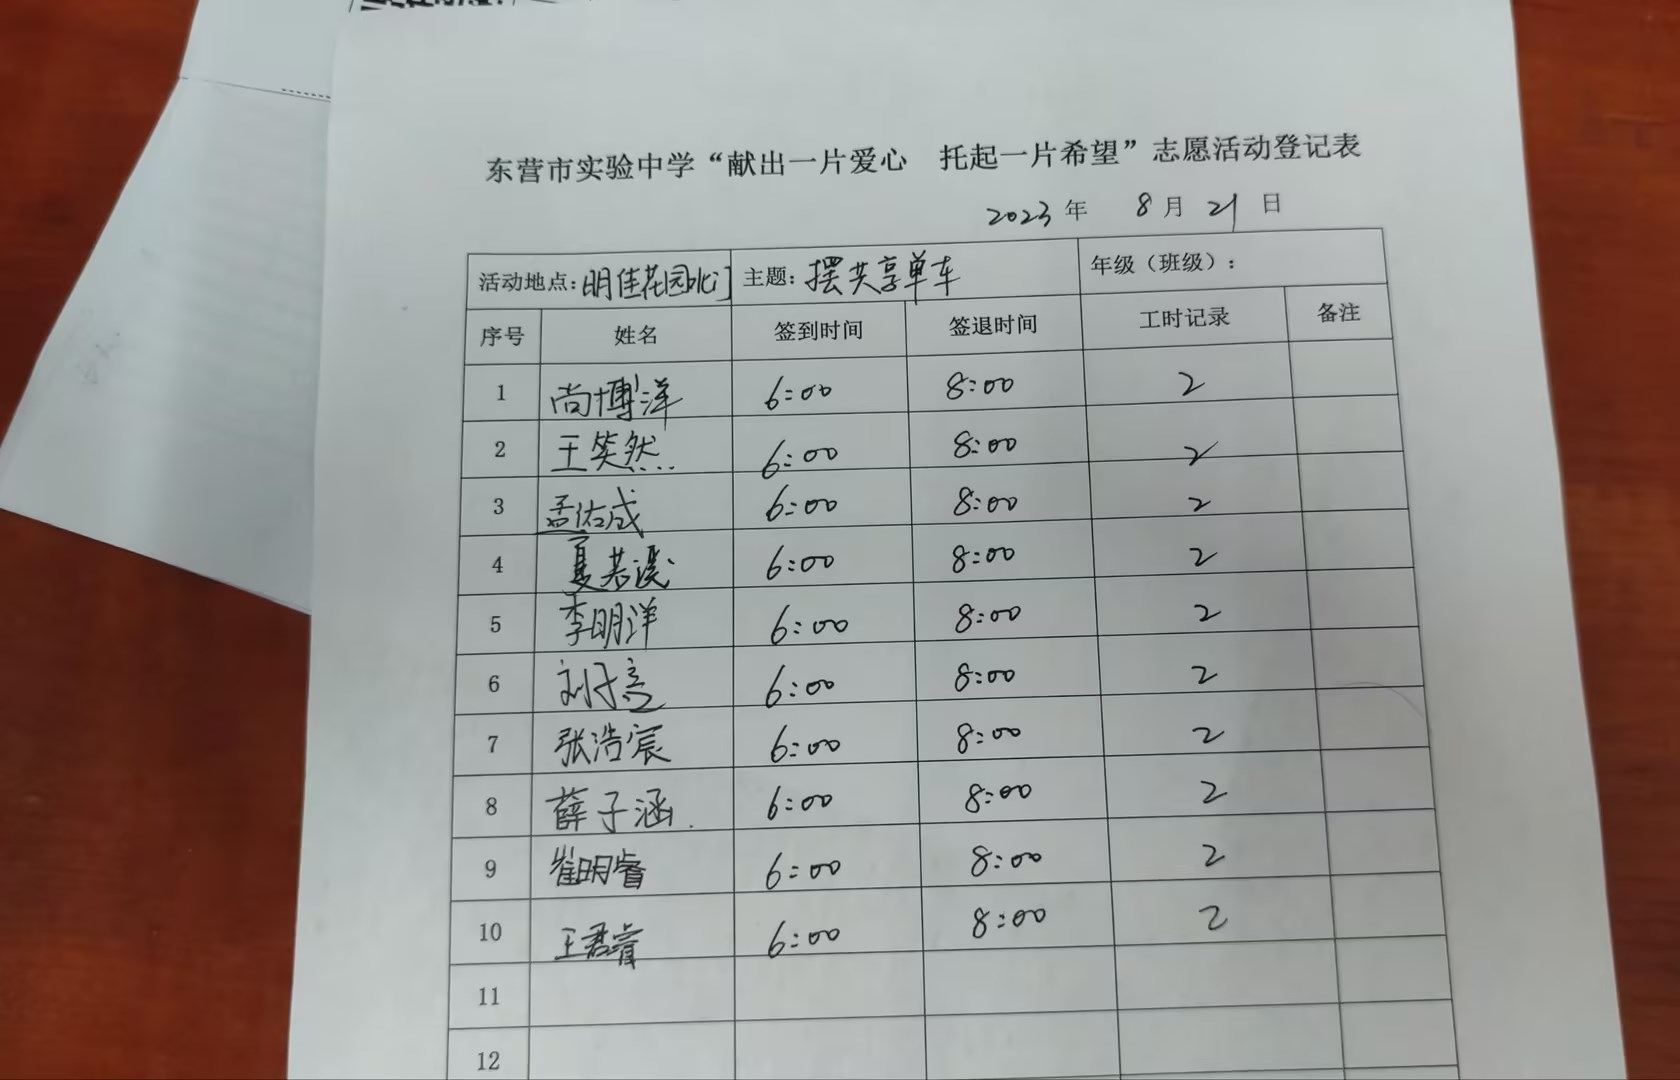 东营市实验中学“献出一片爱心 托起一片希望”志愿活动登记表
2023 年 8 月 21 日
活动地点: 明佳花园北门 主题: 摆共享单车 年级（班级）:
序号 姓名 签到时间 签退时间 工时记录 备注
1 尚博洋 6:00 8:00 2
2 王笑然 6:00 8:00 2
3 孟佑成 6:00 8:00 2
4 夏若溪 6:00 8:00 2
5 李明洋 6:00 8:00 2
6 刘子亮 6:00 8:00 2
7 张浩宸 6:00 8:00 2
8 薛子涵 6:00 8:00 2
9 崔明睿 6:00 8:00 2
10 王君睿 6:00 8:00 2
11
12